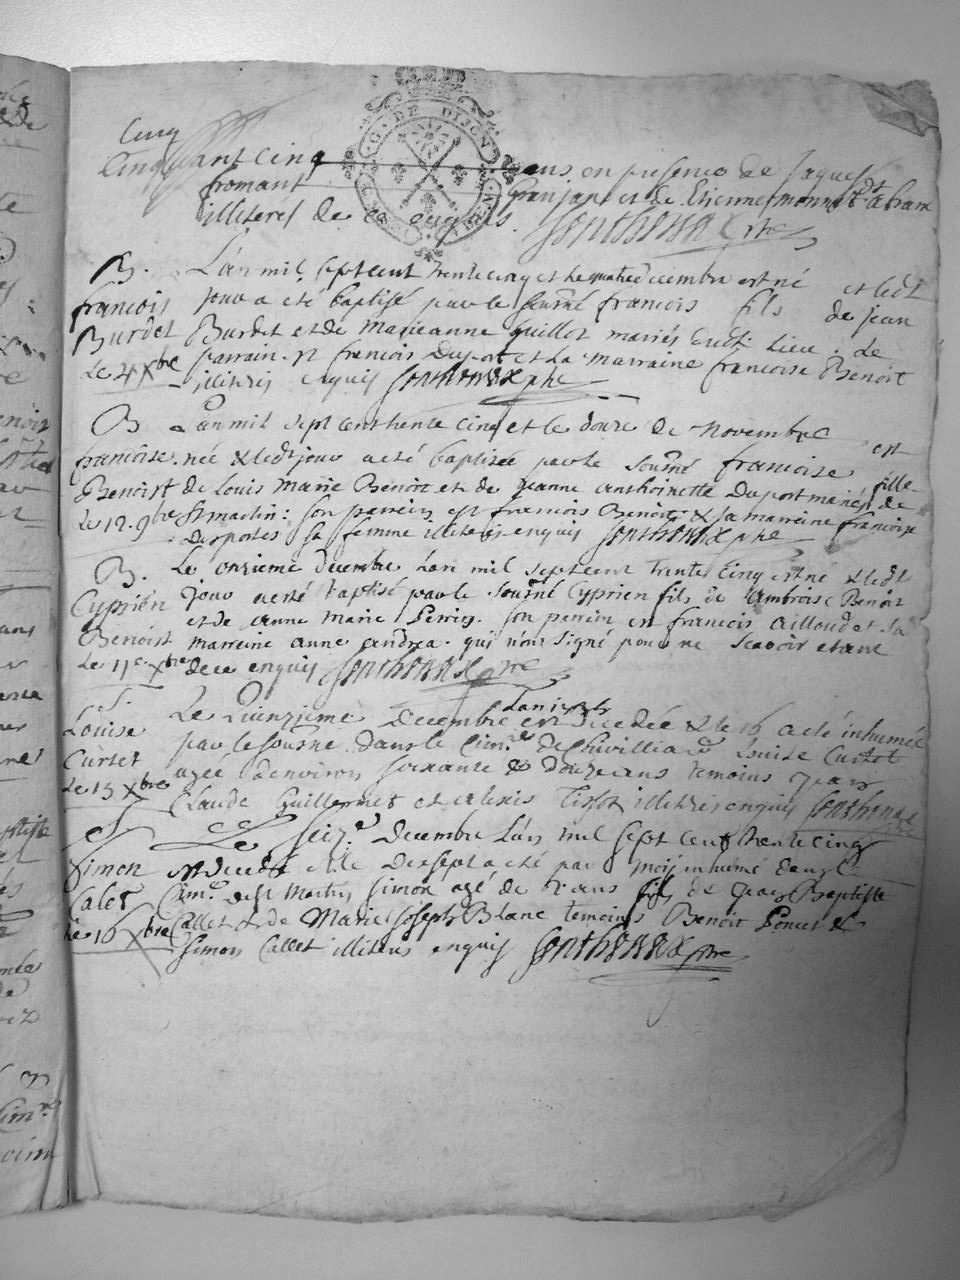 Cinq
Cinquant cinq ans, en presence de Jaques
fromant granjant et de Etienne monnet
illiterés de ce enquis. Sonthonax ptre
G. DE DIJON
B. L'an mil sept cent trente cinq et le quatre decembre est né et ledt
francois jour a été baptisé par le sousné francois fils de jean
Burdet Burdet et de Marieanne guillot mariés dudt Lieu. Le
Le 4 xbre parrain francois Duport et la marraine francoise Benoit
illiterés enquis Sonthonax ptre
B L'an mil sept cent trente cinq et le douze de Novembre est
francoise née & ledt jour a eté baptisée par le sousné francoise fille
Benoist de Louis Marie Benoit et de jeanne anthoinette Duport mariés de
Le 12. 9bre St martin: son parrein est francois Benoit & sa marreine francoise
Desportes sa femme illiterés enquis Sonthonax ptre
B. Le onzieme decembre L'an mil sept cent trente cinq est né & ledt
Cyprien jour a eté baptisé par le sousné Cyprien fils de ambroise Benoit
Benoist et de anne marie Perrin. son perrein est francois ailloud et sa
marreine anne andrea. qui n'ont signé pour ne scavoir etant
Le 11e xbre de ce enquis Sonthonax ptre
S. L'an 1735
Louise Le Quinzieme Decembre est decedée & le 16 a eté inhumée
Curtet par le sousné dans le Cimre de Chavilliard Louise Curtet
Le 15 xbre agée d'environ soixante & douze ans temoins jean
Claude Guillermet et alexis Tissot illiterés enquis Sonthonax
S Le seize Decembre L'an mil sept cent trente cinq
Simon est decedé et le dixsept a eté par moi inhumé dans le
Calet Cimre de St Martin Simon agé de ans fils de jean Baptiste
Le 16 xbre Callet & de Marie joseph Blanc temoins Benoit Poncet &
Simon Callet illiterés enquis Sonthonax ptre